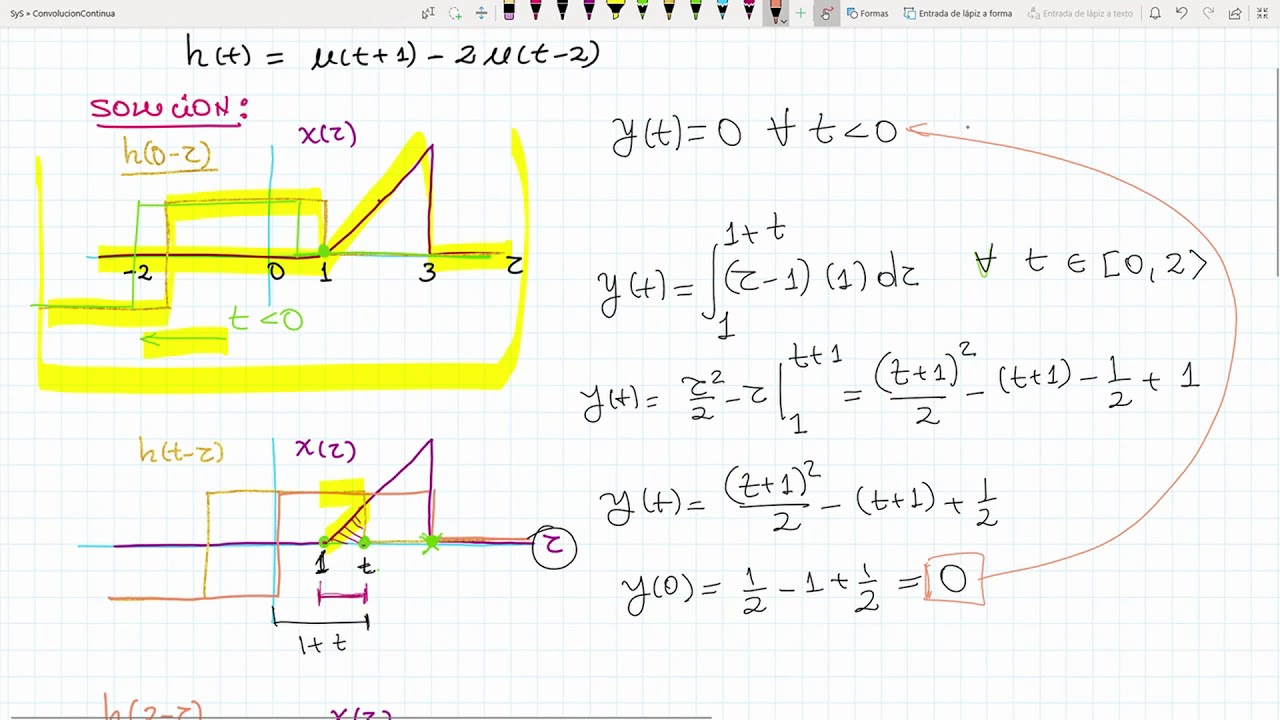 SyS » ConvolucionContinua
Formas
Entrada de lápiz a forma
Entrada de lápiz a texto
h(t) = μ(t+1) - 2μ(t-2)
SOLUCIÓN:
x(τ)
h(0-τ)
-2 0 1 3 τ
t<0
h(t-τ) x(τ)
1 t τ
1+t
h(2-τ) x(τ)
y(t)=0 ∀ t<0
y(t) = ∫₁^(1+t) (τ-1)(1)dτ ∀ t ∈ [0,2>
y(t) = τ²/2 - τ |₁^(t+1) = (t+1)²/2 - (t+1) - 1/2 + 1
y(t) = (t+1)²/2 - (t+1) + 1/2
y(0) = 1/2 - 1 + 1/2 = 0